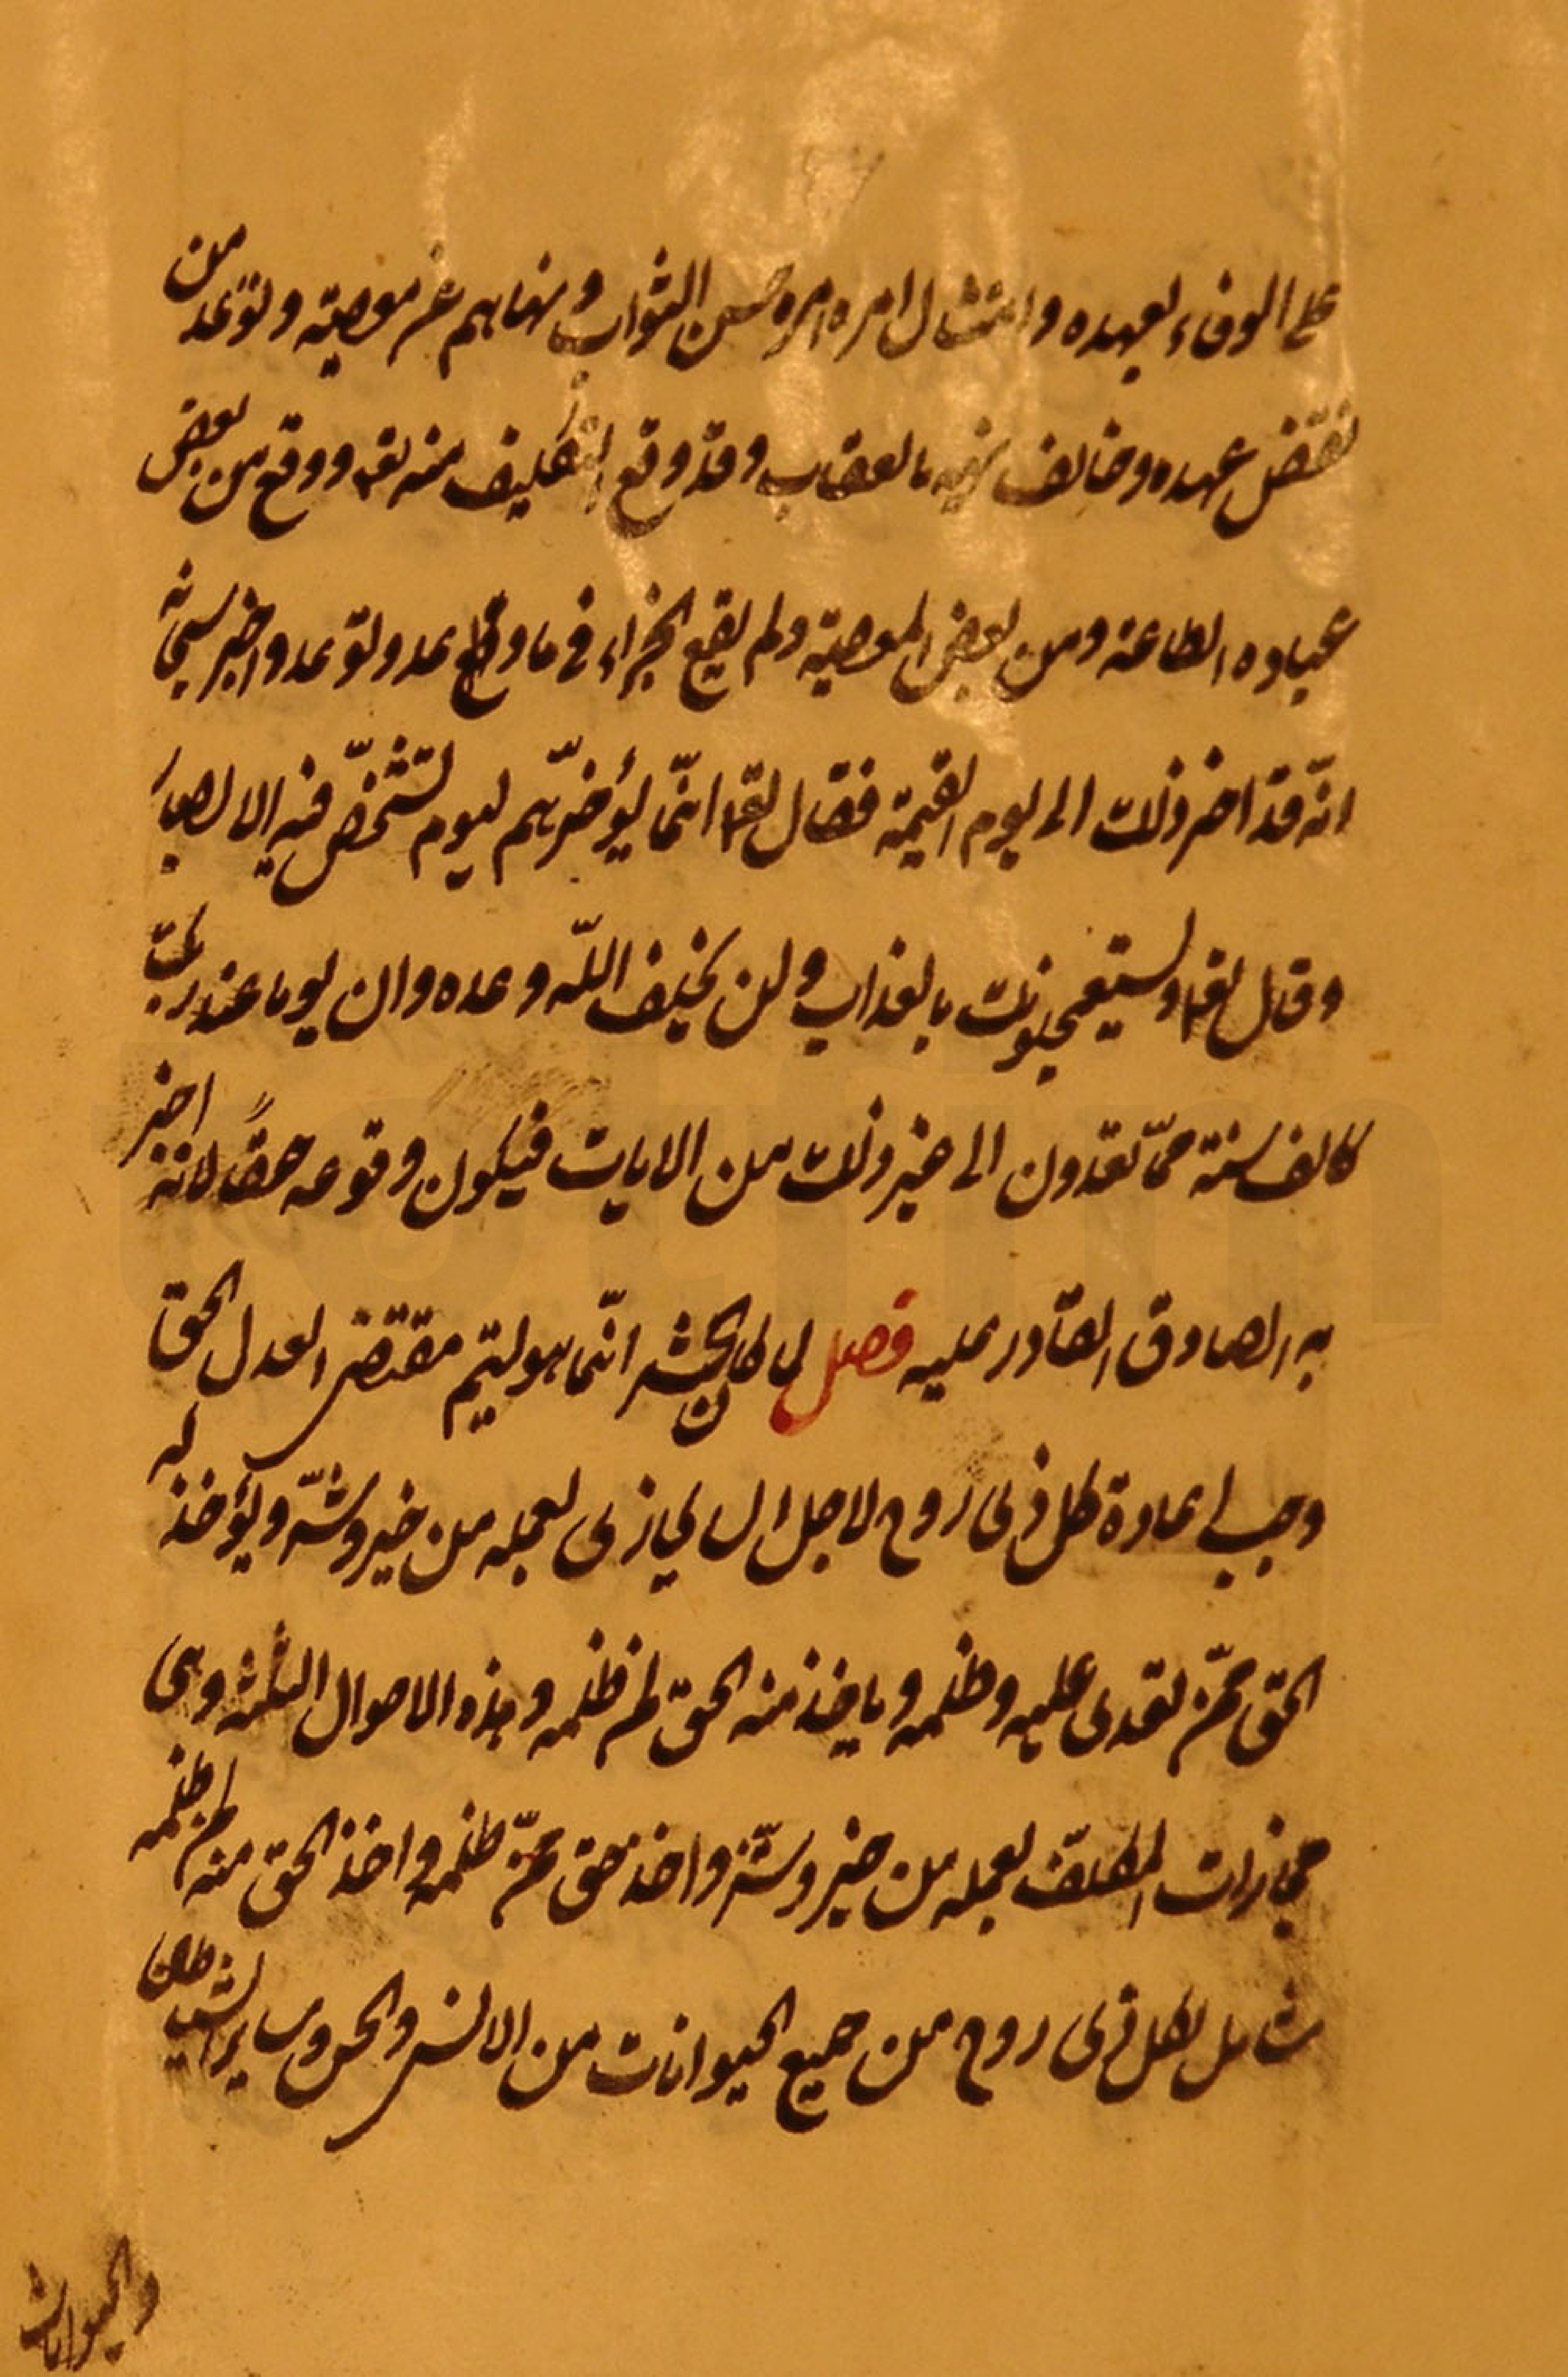 على الوفاء بعهده وامتثال امره امره حسن الثواب ونهاهم عن معصيته وتوعد من
نقض عهده وخالف نهيه بالعقاب وقد وقع التكليف منه تعه ووقع من بعض
عباده الطاعة ومن بعض المعصية ولم يقع الجزاء في ما وقع وعد وتوعد واخبر سبحانه
انّه قد اخر ذلك الى يوم القيمة فقال تعا انّما يؤخّرهم ليوم تشخّص فيه الابصار
وقال تعا ويستعجلونك بالعذاب ولن يخلف اللّه وعده وان يوما عند ربّك
كالف سنة ممّا تعدّون الى غير ذلك من الايات فيكون وقوعه حقاً لانه اخبر
به الصادق القادر عليه فصل لما كان الحشر انّما هو ليتم مقتضى العدل الحق
وجب اعادة كل ذى روح لاجل ان يجازى بعمله من خير وشرّ ويؤخذ له
الحق ممّن تعدى عليه وظلمه وياخذ منه الحق لمن ظلمه وهذه الاحوال الثلثة وهى
مجازات المكلّف بعمله من خير وشرّ واخذ حق ممّن ظلمه واخذ الحق منه لمن ظلمه
شامل لكل ذى روح من جميع الحيوانات من الانس والجن وساير الشياطين
والحيوانات